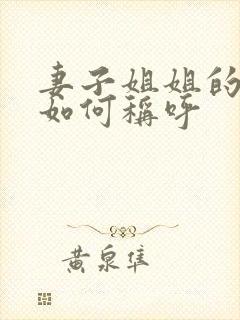 妻子姐姐的
如何稱呼
黄泉隼